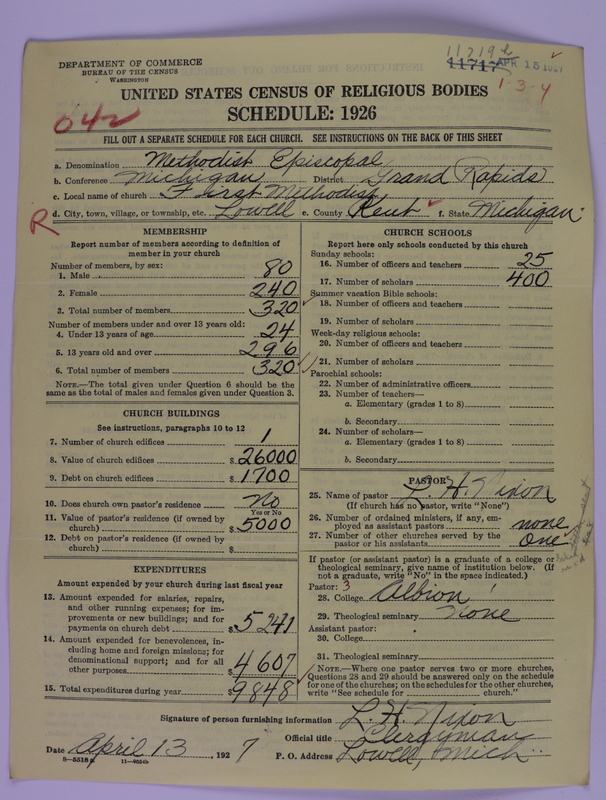 11719 2
11717 APR 15 1927
DEPARTMENT OF COMMERCE
BUREAU OF THE CENSUS
WASHINGTON
1-3-4
UNITED STATES CENSUS OF RELIGIOUS BODIES
SCHEDULE: 1926
042
FILL OUT A SEPARATE SCHEDULE FOR EACH CHURCH. SEE INSTRUCTIONS ON THE BACK OF THIS SHEET
a. Denomination Methodist Episcopal
b. Conference Michigan District Grand Rapids
c. Local name of church First Methodist
R d. City, town, village, or township, etc. Lowell e. County Kent f. State Michigan
MEMBERSHIP
Report number of members according to definition of
member in your church
Number of members, by sex:
1. Male 80
2. Female 240
3. Total number of members 320
Number of members under and over 13 years old:
4. Under 13 years of age 24
5. 13 years old and over 296
6. Total number of members 320
NOTE.—The total given under Question 6 should be the
same as the total of males and females given under Question 3.
CHURCH BUILDINGS
See instructions, paragraphs 10 to 12
7. Number of church edifices 1
8. Value of church edifices $ 26000
9. Debt on church edifices $ 1700
10. Does church own pastor's residence No
Yes or No
11. Value of pastor's residence (if owned by
church) $ 5000
12. Debt on pastor's residence (if owned by
church) $
EXPENDITURES
Amount expended by your church during last fiscal year
13. Amount expended for salaries, repairs,
and other running expenses; for im-
provements or new buildings; and for
payments on church debt $ 5241
14. Amount expended for benevolences, in-
cluding home and foreign missions; for
denominational support; and for all
other purposes $ 4607
15. Total expenditures during year $ 9848
CHURCH SCHOOLS
Report here only schools conducted by this church
Sunday schools:
16. Number of officers and teachers 25
17. Number of scholars 400
Summer vacation Bible schools:
18. Number of officers and teachers
19. Number of scholars
Week-day religious schools:
20. Number of officers and teachers
21. Number of scholars
Parochial schools:
22. Number of administrative officers
23. Number of teachers—
a. Elementary (grades 1 to 8)
b. Secondary
24. Number of scholars—
a. Elementary (grades 1 to 8)
b. Secondary
PASTOR
25. Name of pastor L. H. Nixon
(If church has no pastor, write "None")
26. Number of ordained ministers, if any, em-
ployed as assistant pastors none
27. Number of other churches served by the
pastor or his assistants one
If pastor (or assistant pastor) is a graduate of a college or
theological seminary, give name of institution below. (If
not a graduate, write "No" in the space indicated.)
Pastor: 3
28. College Albion
29. Theological seminary None
Assistant pastor:
30. College
31. Theological seminary
NOTE.—Where one pastor serves two or more churches,
Questions 28 and 29 should be answered only on the schedule
for one of the churches; on the schedules for the other churches,
write "See schedule for church."
Signature of person furnishing information L. H. Nixon
Official title Clergyman
Date April 13, 1927 P. O. Address Lowell, Mich.
8—5518 a 11—4654b